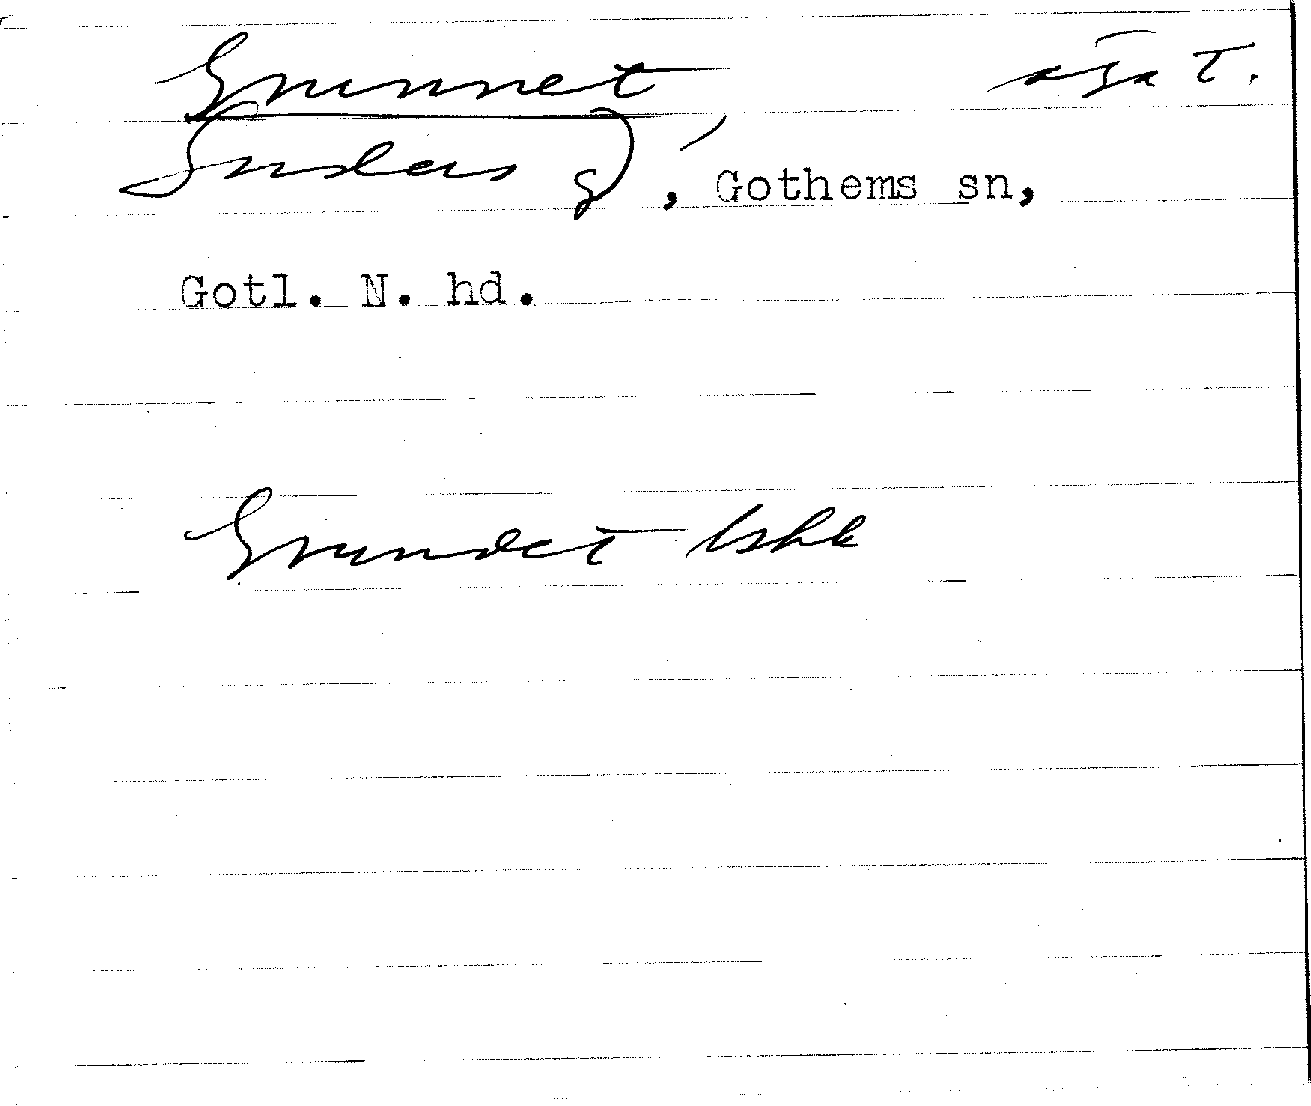 Grunnet
(Suders g), Gothems sn,
Gotl. N. hd.
Grundet